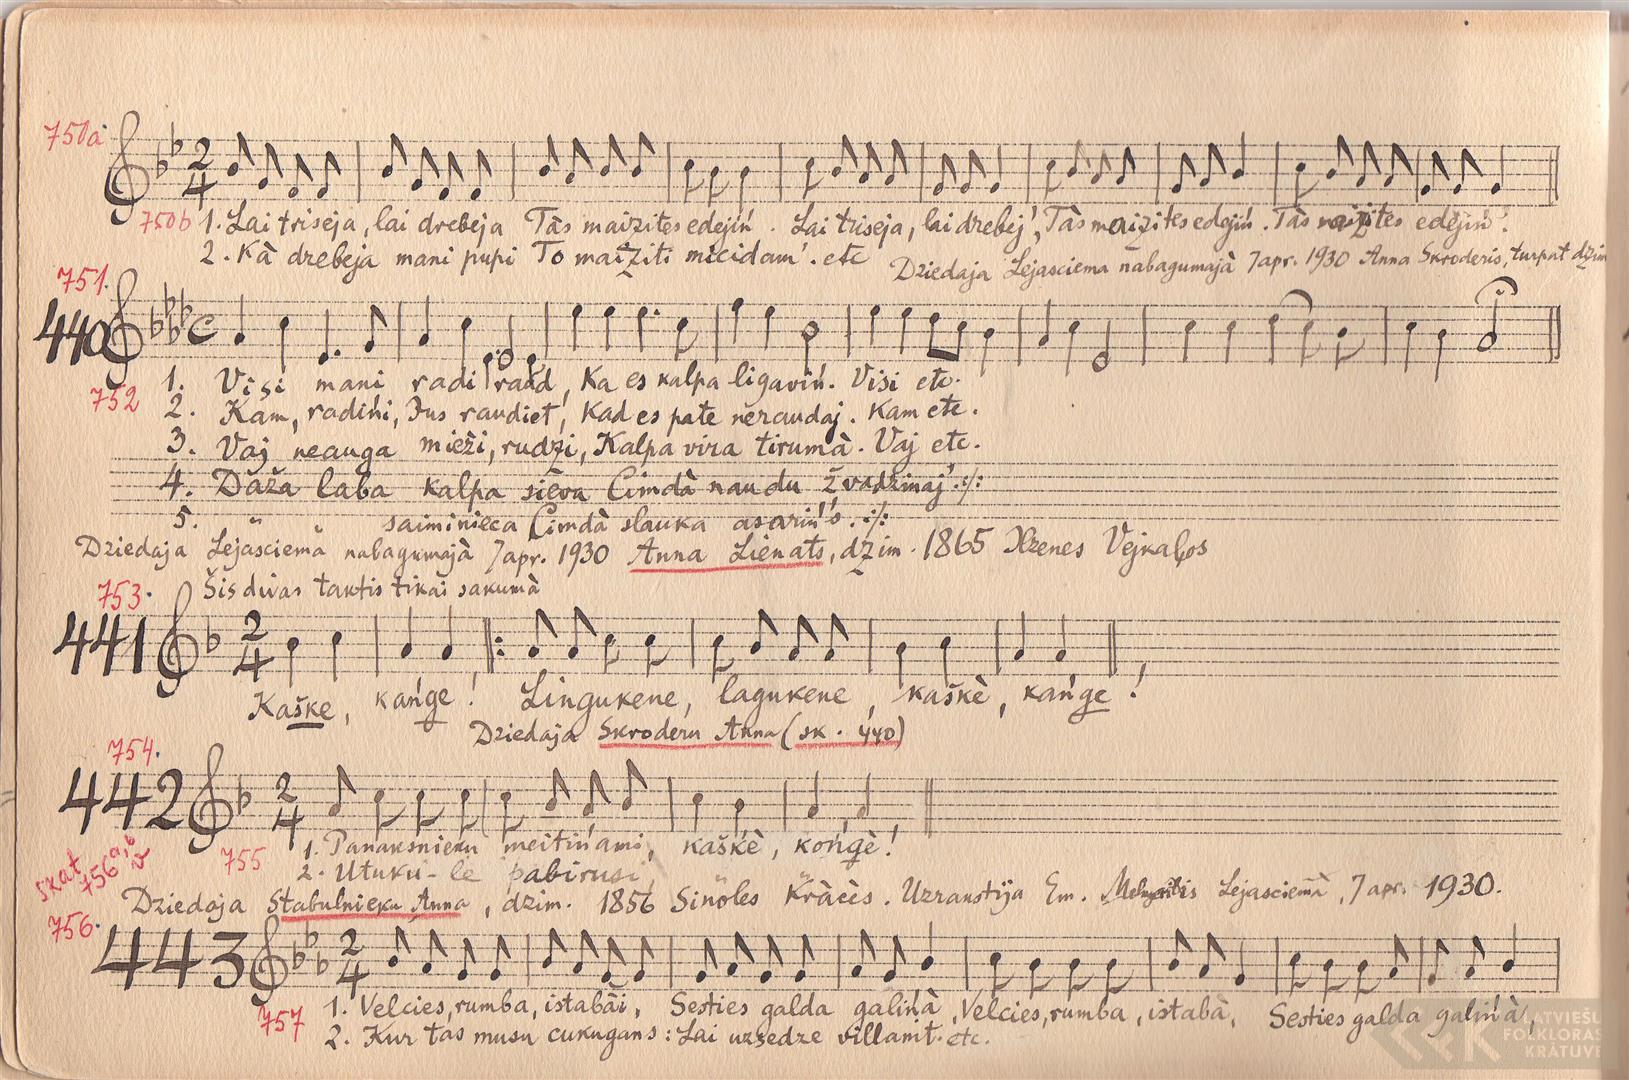 750a
750b 1. Lai triseja, lai drebeja Tàs maizites edejiń. Lai triseja, lai drebej', Tàs maizites edejiń. Tàs maizites edejiń.
2. Kà drebeja mani pupi To maiziti micidam'. etc
Dziedaja Lejasciema nabagumajà 7 apr. 1930 Anna Skroderis, turpat dzim
751.
440
1. Visi mani radi raud, Ka es kalpa ligaviń. Visi etc.
752 2. Kam, radińi, Jus raudiet', Kad es pate neraudaj. Kam etc.
3. Vaj neauga mieži, rudzi, Kalpa vira tirumà. Vaj etc.
4. Daža laba kalpa sieva Cimdà naudu žvadzinaj'. :/:
5. " " saiminieca Cimdà slauka asariń's. :/:
Dziedaja Lejasciemā nabagumajà 7 apr. 1930 Anna Lienats, dzim. 1865 Ilzenes Vejkaļos
753. Šis divas taktis tikai sakumà
441
Kaške, kańge! Lingukene, lagukene, kaškè, kańge!
Dziedaja Skroderu Anna (sk. 440)
754.
442
1. Panaksnieku meitińami, kaškè, końgè!
755 2. Utuku-le pabirusi,
skat 756 a, b
Dziedaja Stabulnieku Anna, dzim. 1856 Sinoles Kràcès. Uzrakstija Em. Melngailis Lejasciemà, 7 apr. 1930.
756.
443
1. Velcies, rumba, istabāi, Sesties galda galińà, Velcies, rumba, istabà, Sesties galda galińà,
757 2. Kur tas musu cukugans: Lai uzsedze villanit. etc.
LATVIEŠU
FOLKLORAS
KRĀTUVE